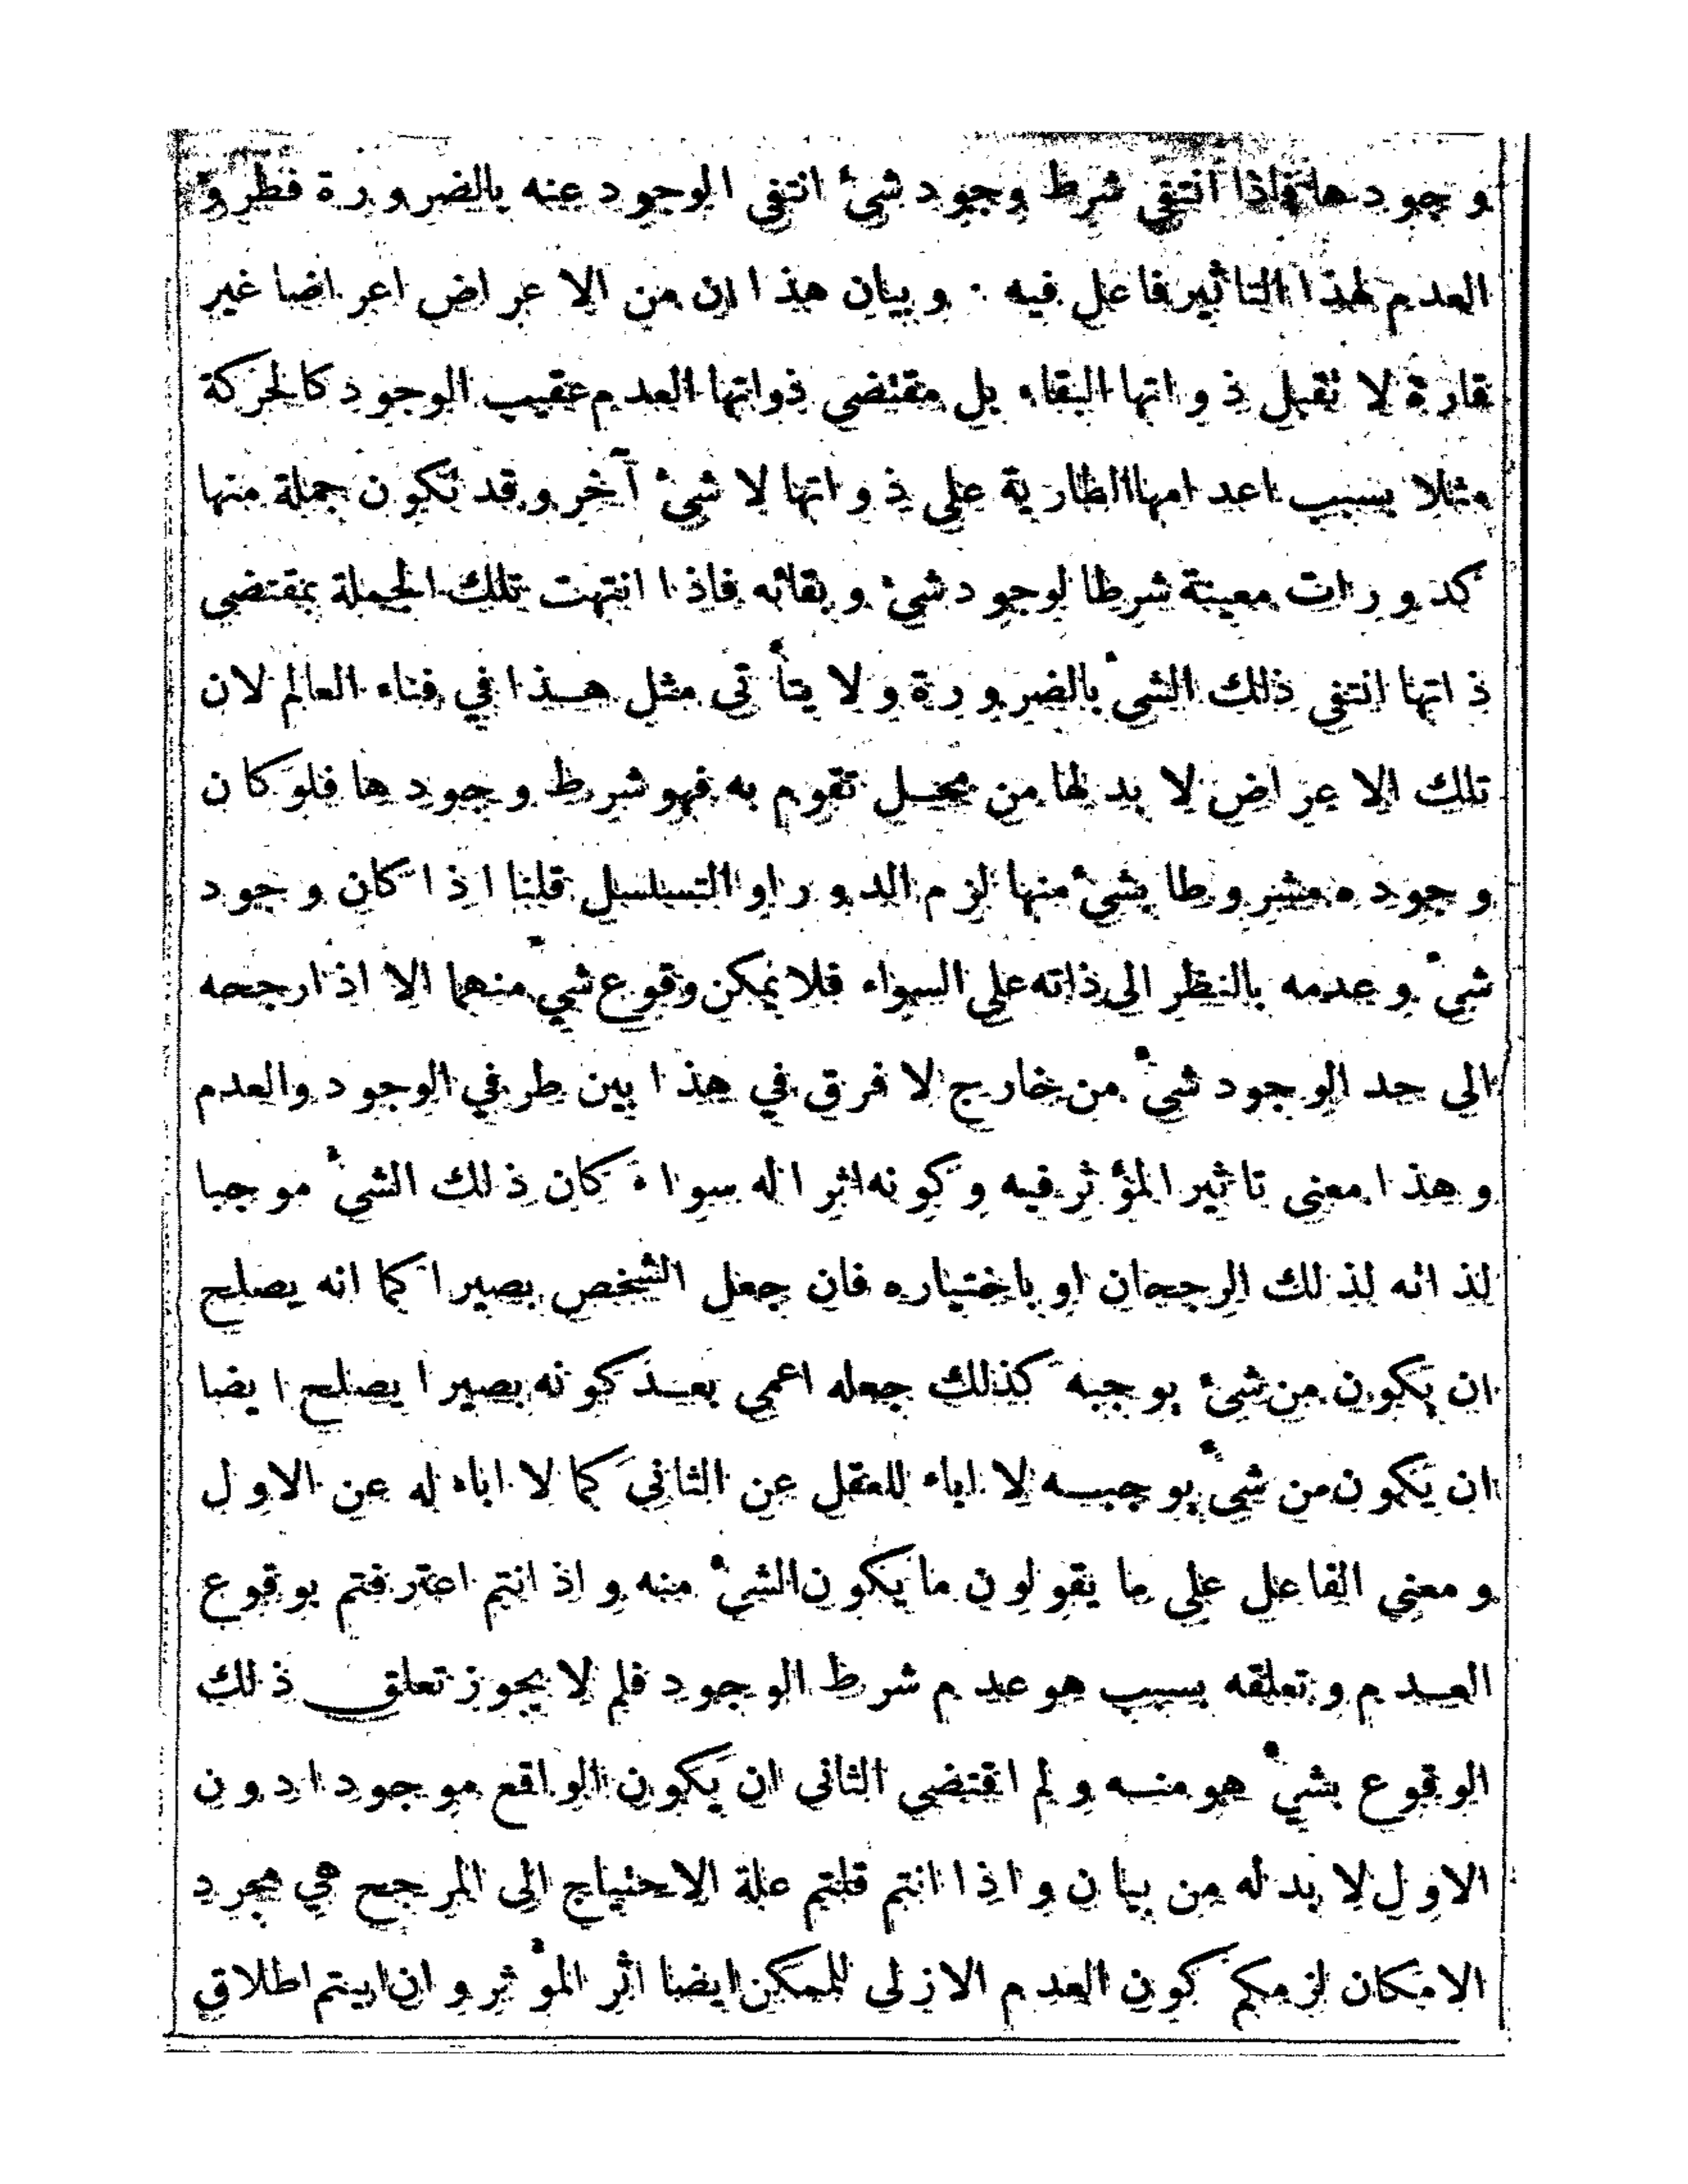 وجودها فاذا انتفى شرط وجود شئ انتفى الوجود عنه بالضرورة فطروّ
العدم لهذا التاثير فاعل فيه . وبيان هذا ان من الاعراض اعراضا غير
قارة لا تقبل ذواتها البقاء بل مقتضى ذواتها العدم عقيب الوجود كالحركة
مثلا بسبب اعدامها الطارية على ذواتها لا شئ آخر وقد تكون جملة منها
كدورات معينة شرطا لوجود شئ وبقائه فاذا انتهت تلك الجملة بمقتضى
ذاتها انتفى ذلك الشئ بالضرورة ولا يتأتى مثل هذا في فناء العالم لان
تلك الاعراض لا بد لها من محل تقوم به فهو شرط وجودها فلو كان
وجوده مشروطا بشئ منها لزم الدور او التسلسل قلنا اذا كان وجود
شئ وعدمه بالنظر الى ذاته على السواء فلا يمكن وقوع شئ منهما الا اذا رجحه
الى حد الوجود شئ من خارج لا فرق في هذا بين طرفي الوجود والعدم
وهذا معنى تاثير المؤثر فيه وكونه اثرا له سواء كان ذلك الشئ موجبا
لذاته لذلك الرجحان او باختياره فان جعل الشخص بصيرا كما انه يصلح
ان يكون من شئ يوجبه كذلك جعله اعمى بعد كونه بصيرا يصلح ايضا
ان يكون من شئ يوجبه لا اباء للعقل عن الثاني كما لا اباء له عن الاول
ومعنى الفاعل على ما يقولون ما يكون الشئ منه واذ انتم اعترفتم بوقوع
العدم وتعلقه بسبب هو عدم شرط الوجود فلم لا يجوز تعلق ذلك
الوقوع بشئ هو منه ولم اقتضى الثاني ان يكون الواقع موجودا دون
الاول لا بد له من بيان واذا انتم قلتم علة الاحتياج الى المرجح هي مجرد
الامكان لزمكم كون العدم الازلي للممكن ايضا اثر المؤثر وان ابيتم اطلاق